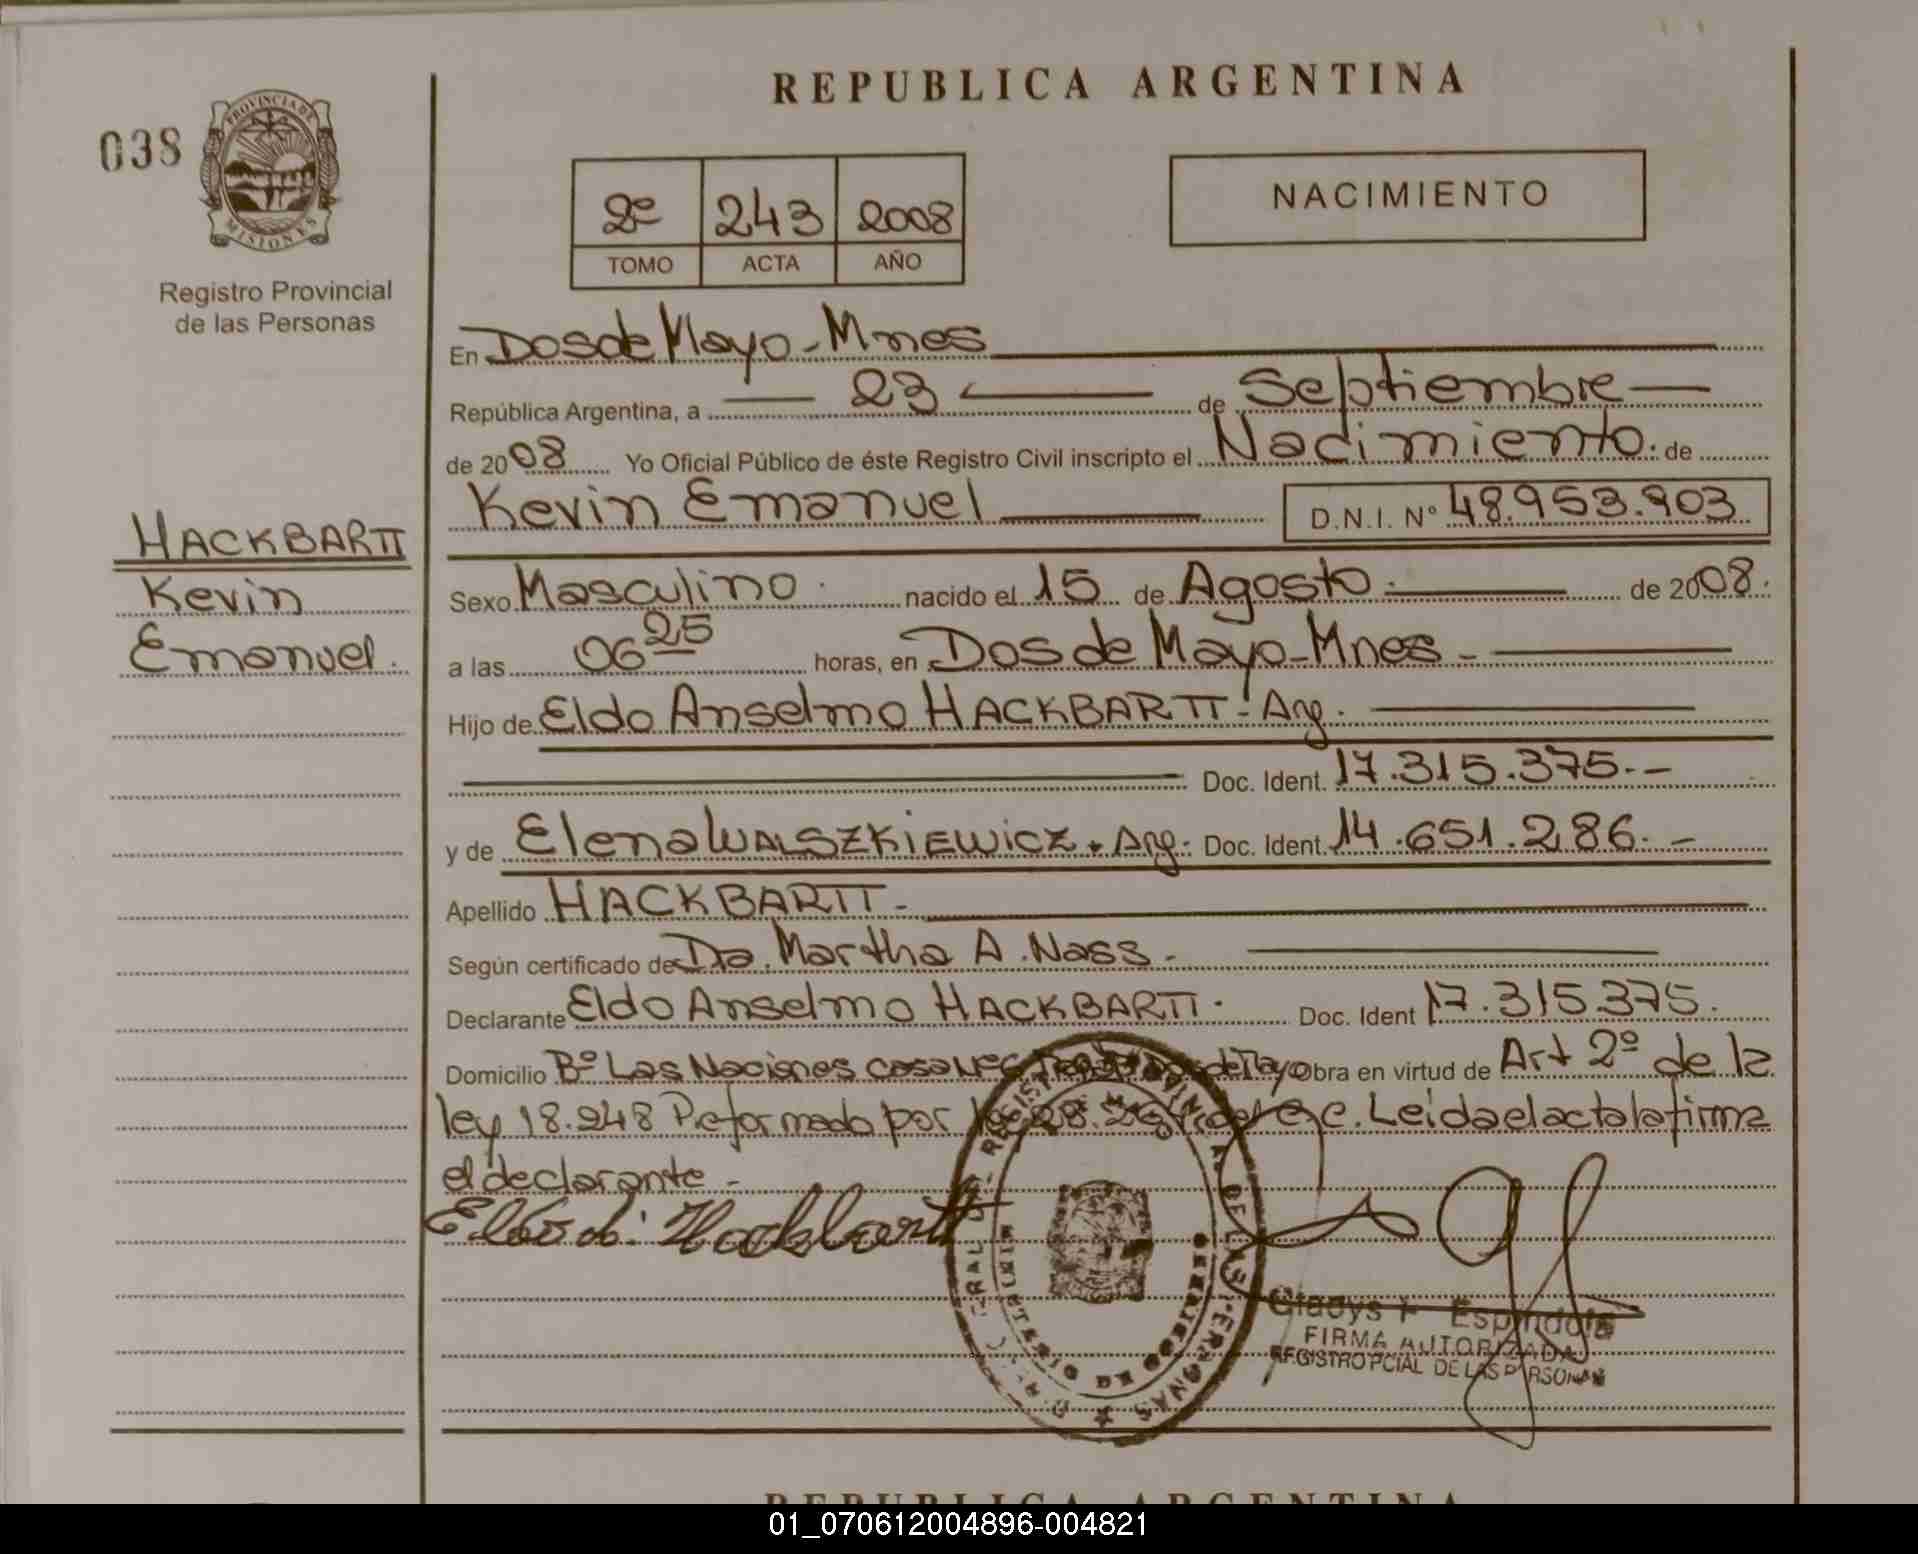 REPUBLICA ARGENTINA
038
PROVINCIA DE
MISIONES
Registro Provincial
de las Personas
2º 243 2008
TOMO ACTA AÑO
NACIMIENTO
En Dos de Mayo - Mnes
República Argentina, a 23 de Septiembre
de 2008 Yo Oficial Público de éste Registro Civil inscripto el Nacimiento. de
Kevin Emanuel D.N.I. Nº 48.953.903
HACKBARTT
Kevin
Emanuel.
Sexo Masculino. nacido el 15 de Agosto. de 2008.
a las 06 25 horas, en Dos de Mayo - Mnes -
Hijo de Eldo Anselmo HACKBARTT - Arg.
Doc. Ident. 17.315.375.-
y de Elena WALSZKIEWICZ. Arg. Doc. Ident. 14.651.286. -
Apellido HACKBARTT -
Según certificado de Da. Martha A. Nass.
Declarante Eldo Anselmo HACKBARTT. Doc. Ident 17.315.375.
Domicilio Bº Las Naciones casa Nº6 Dos de Mayo Obra en virtud de Art 2º de la
ley 18.248 Reformado por C.C. Leida el acta la firma
el declarante -
Hackbartt
Gladys Espindola
FIRMA AUTORIZADA
REGISTRO PCIAL DE LAS PERSONAS
REPUBLICA ARGENTINA
01_070612004896-004821